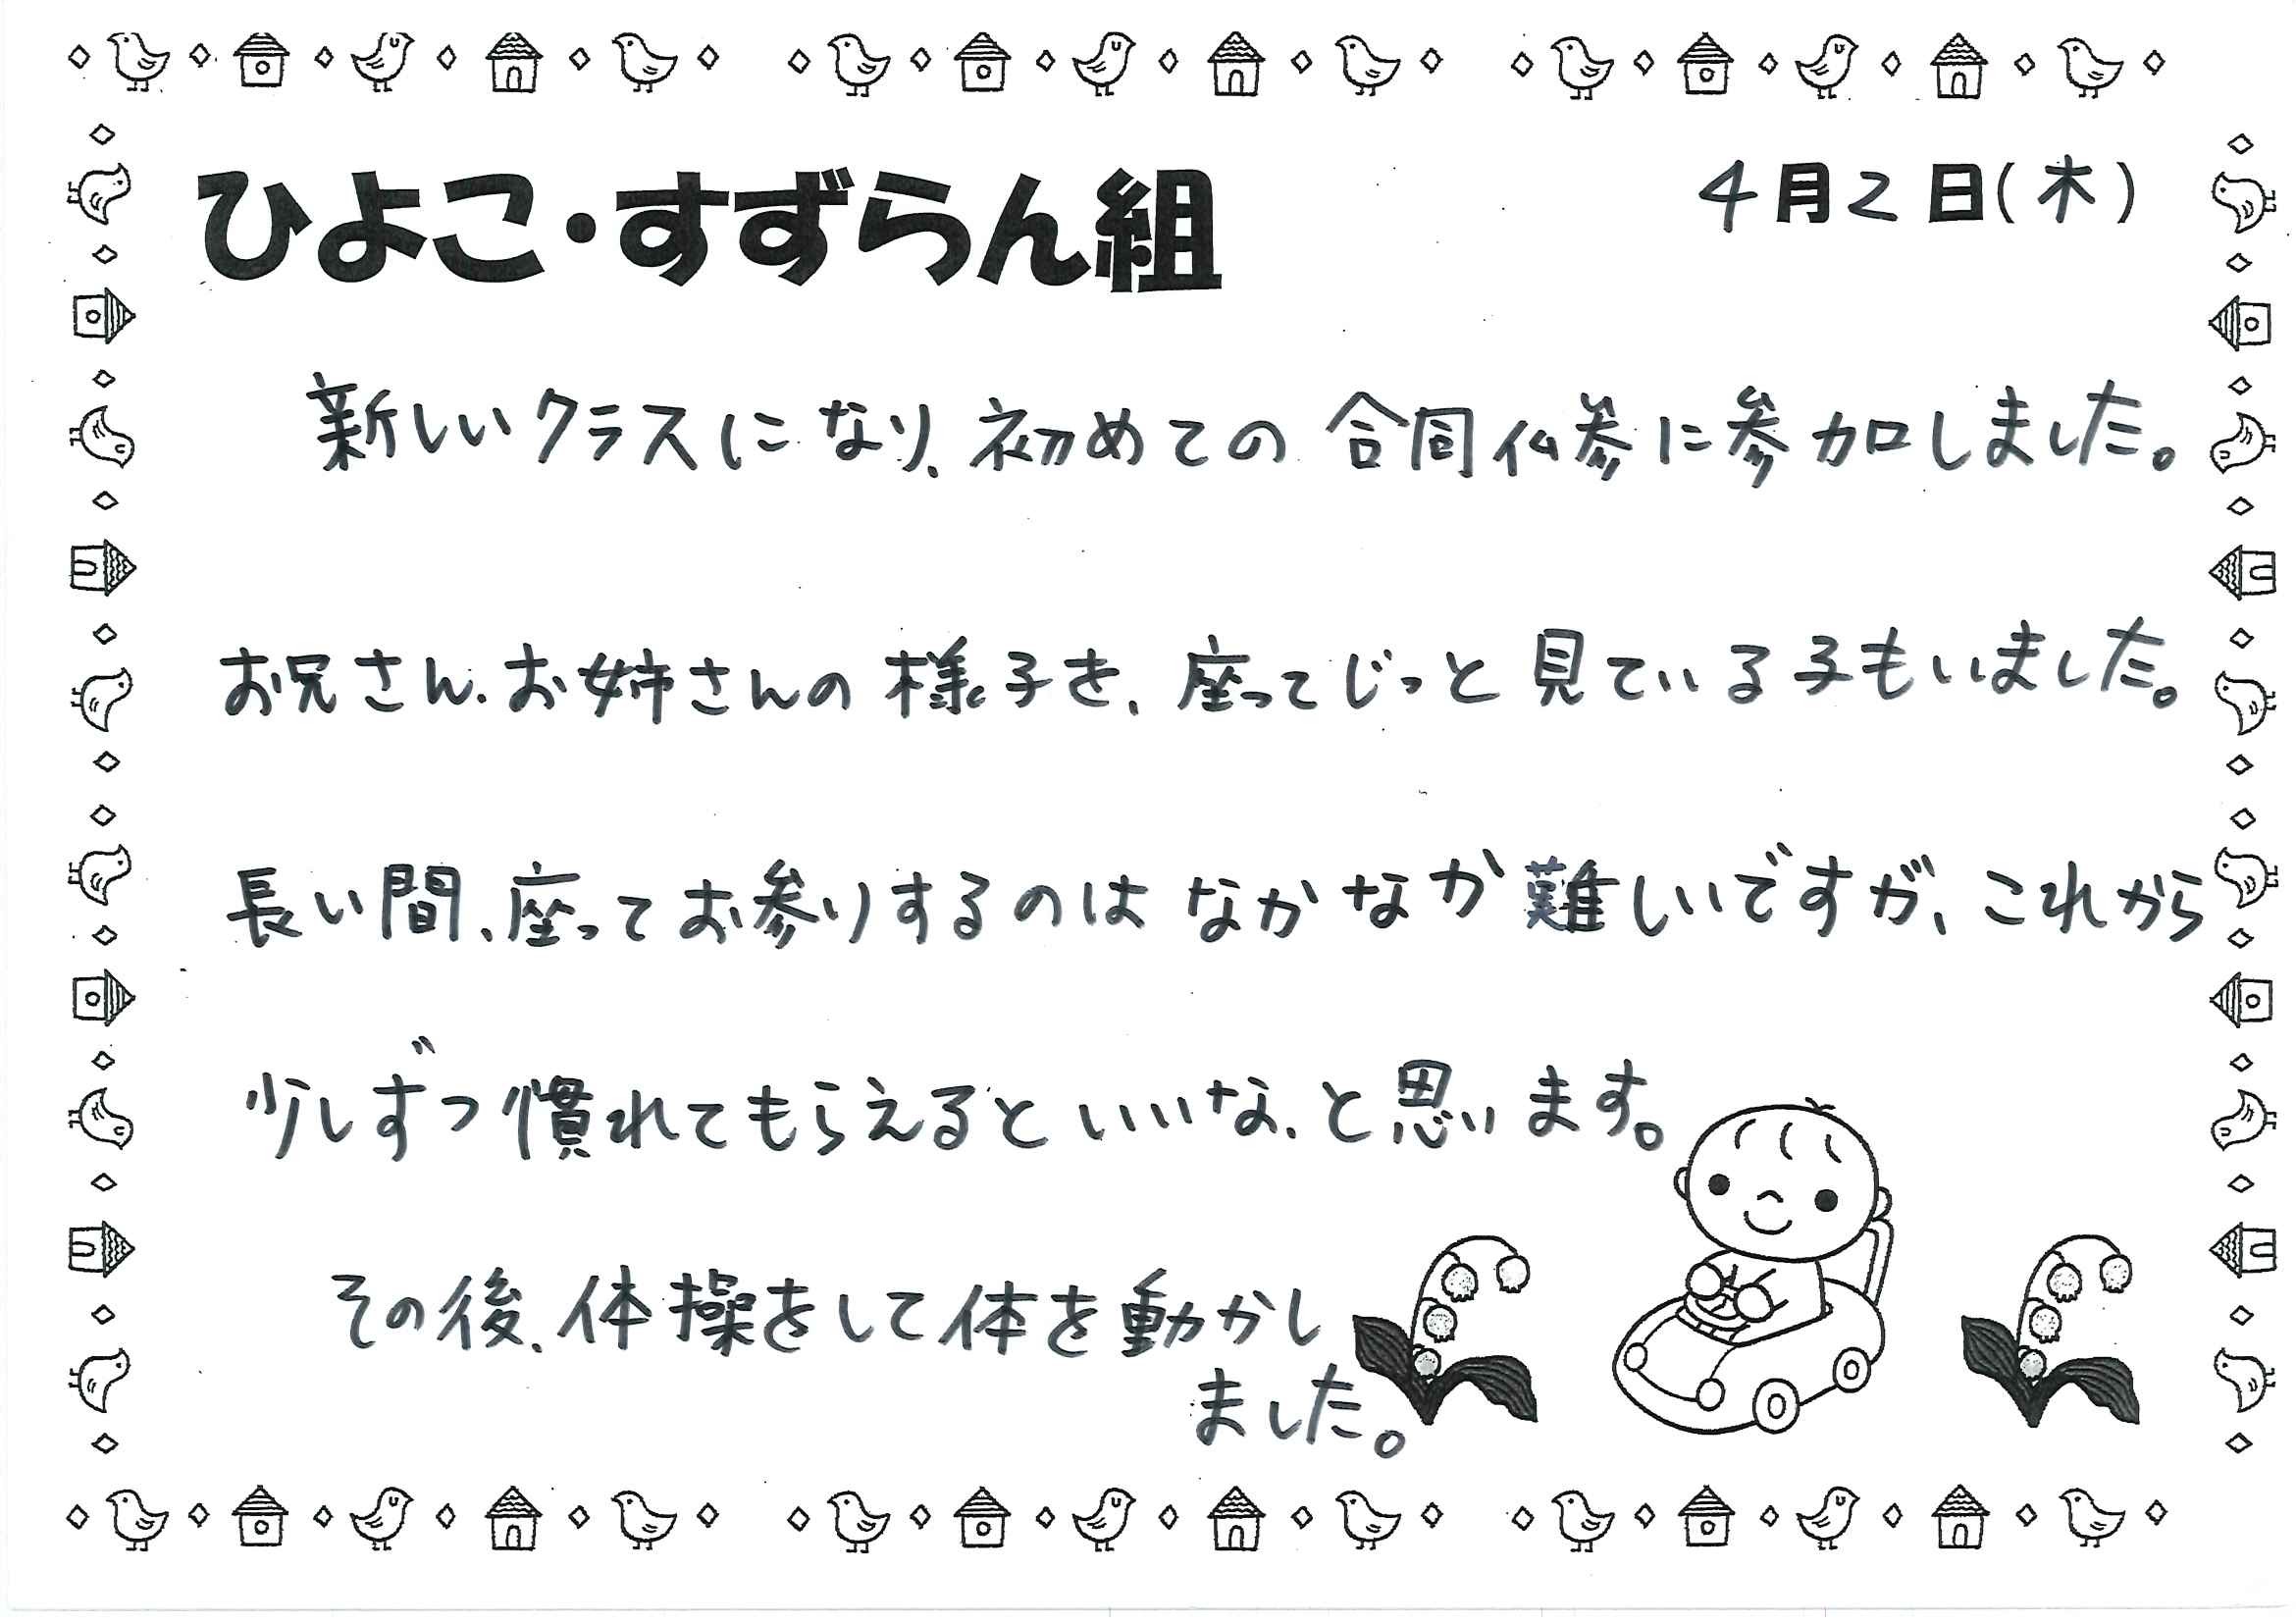 ひよこ・すずらん組
4月2日(木)
新しいクラスになり、初めての合同仏参に参加しました。
お兄さん、お姉さんの様子を、座ってじっと見ている子もいました。
長い間、座ってお参りするのはなかなか難しいですが、これから
少しずつ慣れてもらえるといいな、と思います。
その後、体操をして体を動かし
ました。